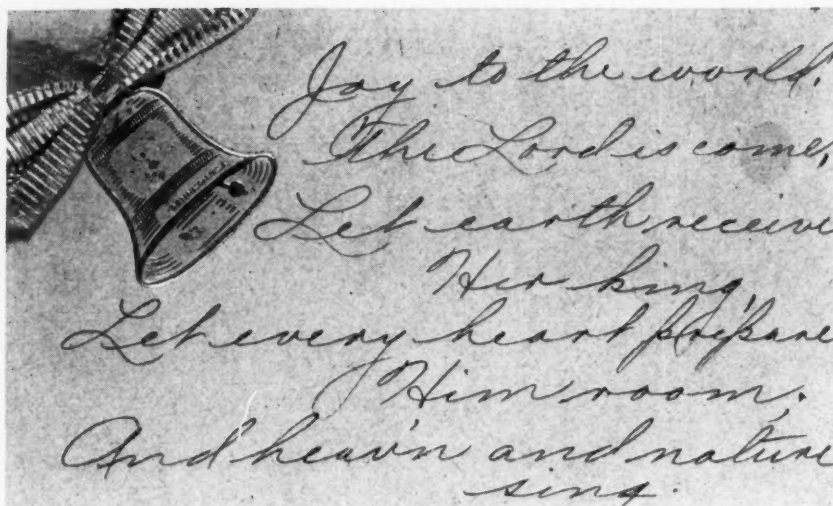 Joy to the world!
The Lord is come,
Let earth receive
Her king,
Let every heart prepare
Him room,
And heav'n and nature
sing.